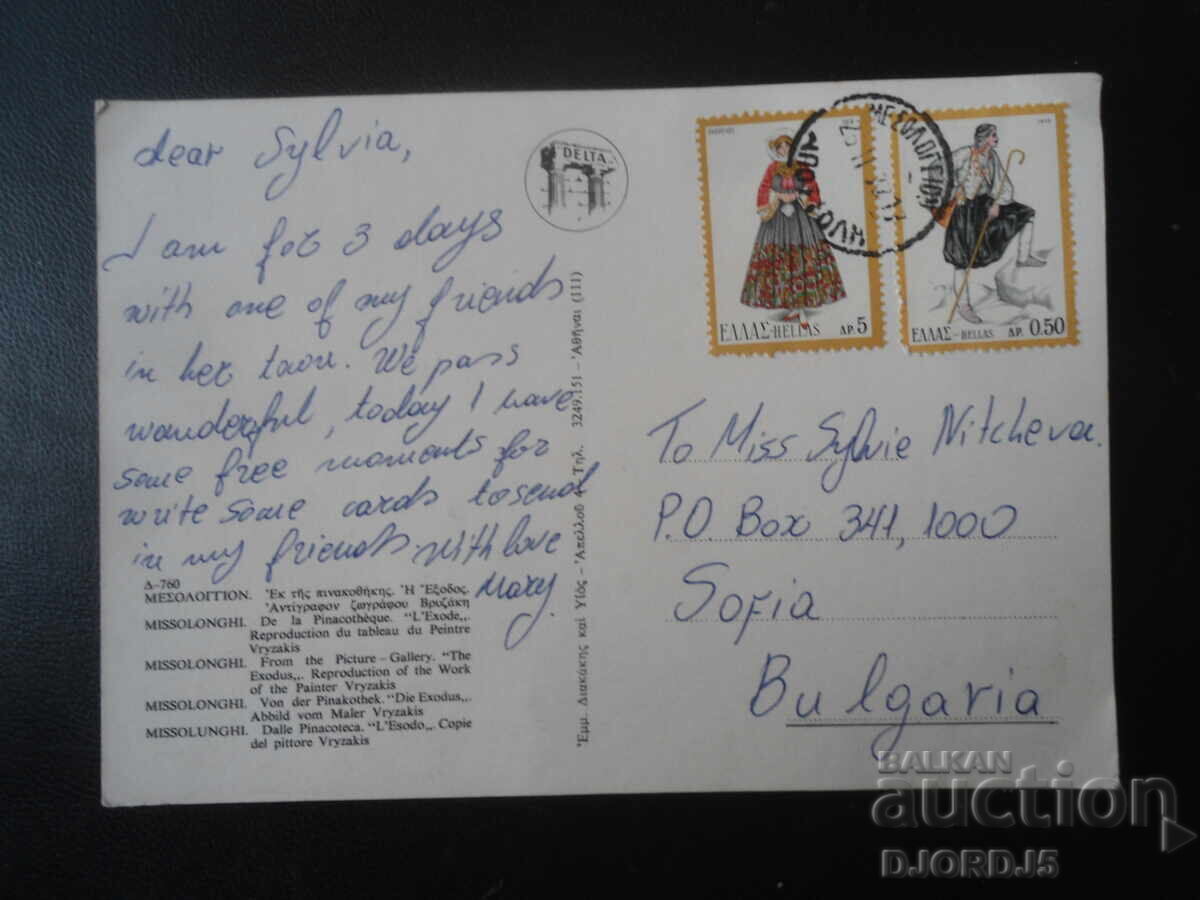 dear Sylvia,
I am for 3 days
with one of my friends
in her town. We pass
wonderful, today I have
some free moments for
write some cards to send
in my friends. With love
Mary
Δ-760
ΜΕΣΟΛΟΓΓΙΟΝ. Ἐκ τῆς πινακοθήκης. Ἡ Ἔξοδος.
Ἀντίγραφον ζωγράφου Βρυζάκη
MISSOLONGHI. De la Pinacothèque. "L'Exode„.
Reproduction du tableau du Peintre
Vryzakis
MISSOLONGHI. From the Picture-Gallery. "The
Exodus„. Reproduction of the Work
of the Painter Vryzakis
MISSOLONGHI. Von der Pinakothek. "Die Exodus„.
Abbild vom Maler Vryzakis
MISSOLUNGHI. Dalle Pinacoteca. "L'Esodo„. Copie
del pittore Vryzakis
DELTA
Ἐμμ. Διακάκης καὶ Υἱός - Ἀπελλοῦ Τηλ. 3249.151 - Ἀθῆναι (111)
ΕΛΛΑΣ-HELLAS ΔΡ. 5
ΕΛΛΑΣ-HELLAS ΔΡ. 0.50
ΜΕΣΟΛΟΓΓΙΟΝ
To Miss Sylvie Nitcheva.
P.O. Box 341, 1000
Sofia
Bulgaria
BALKAN
auction
DJORDJ5